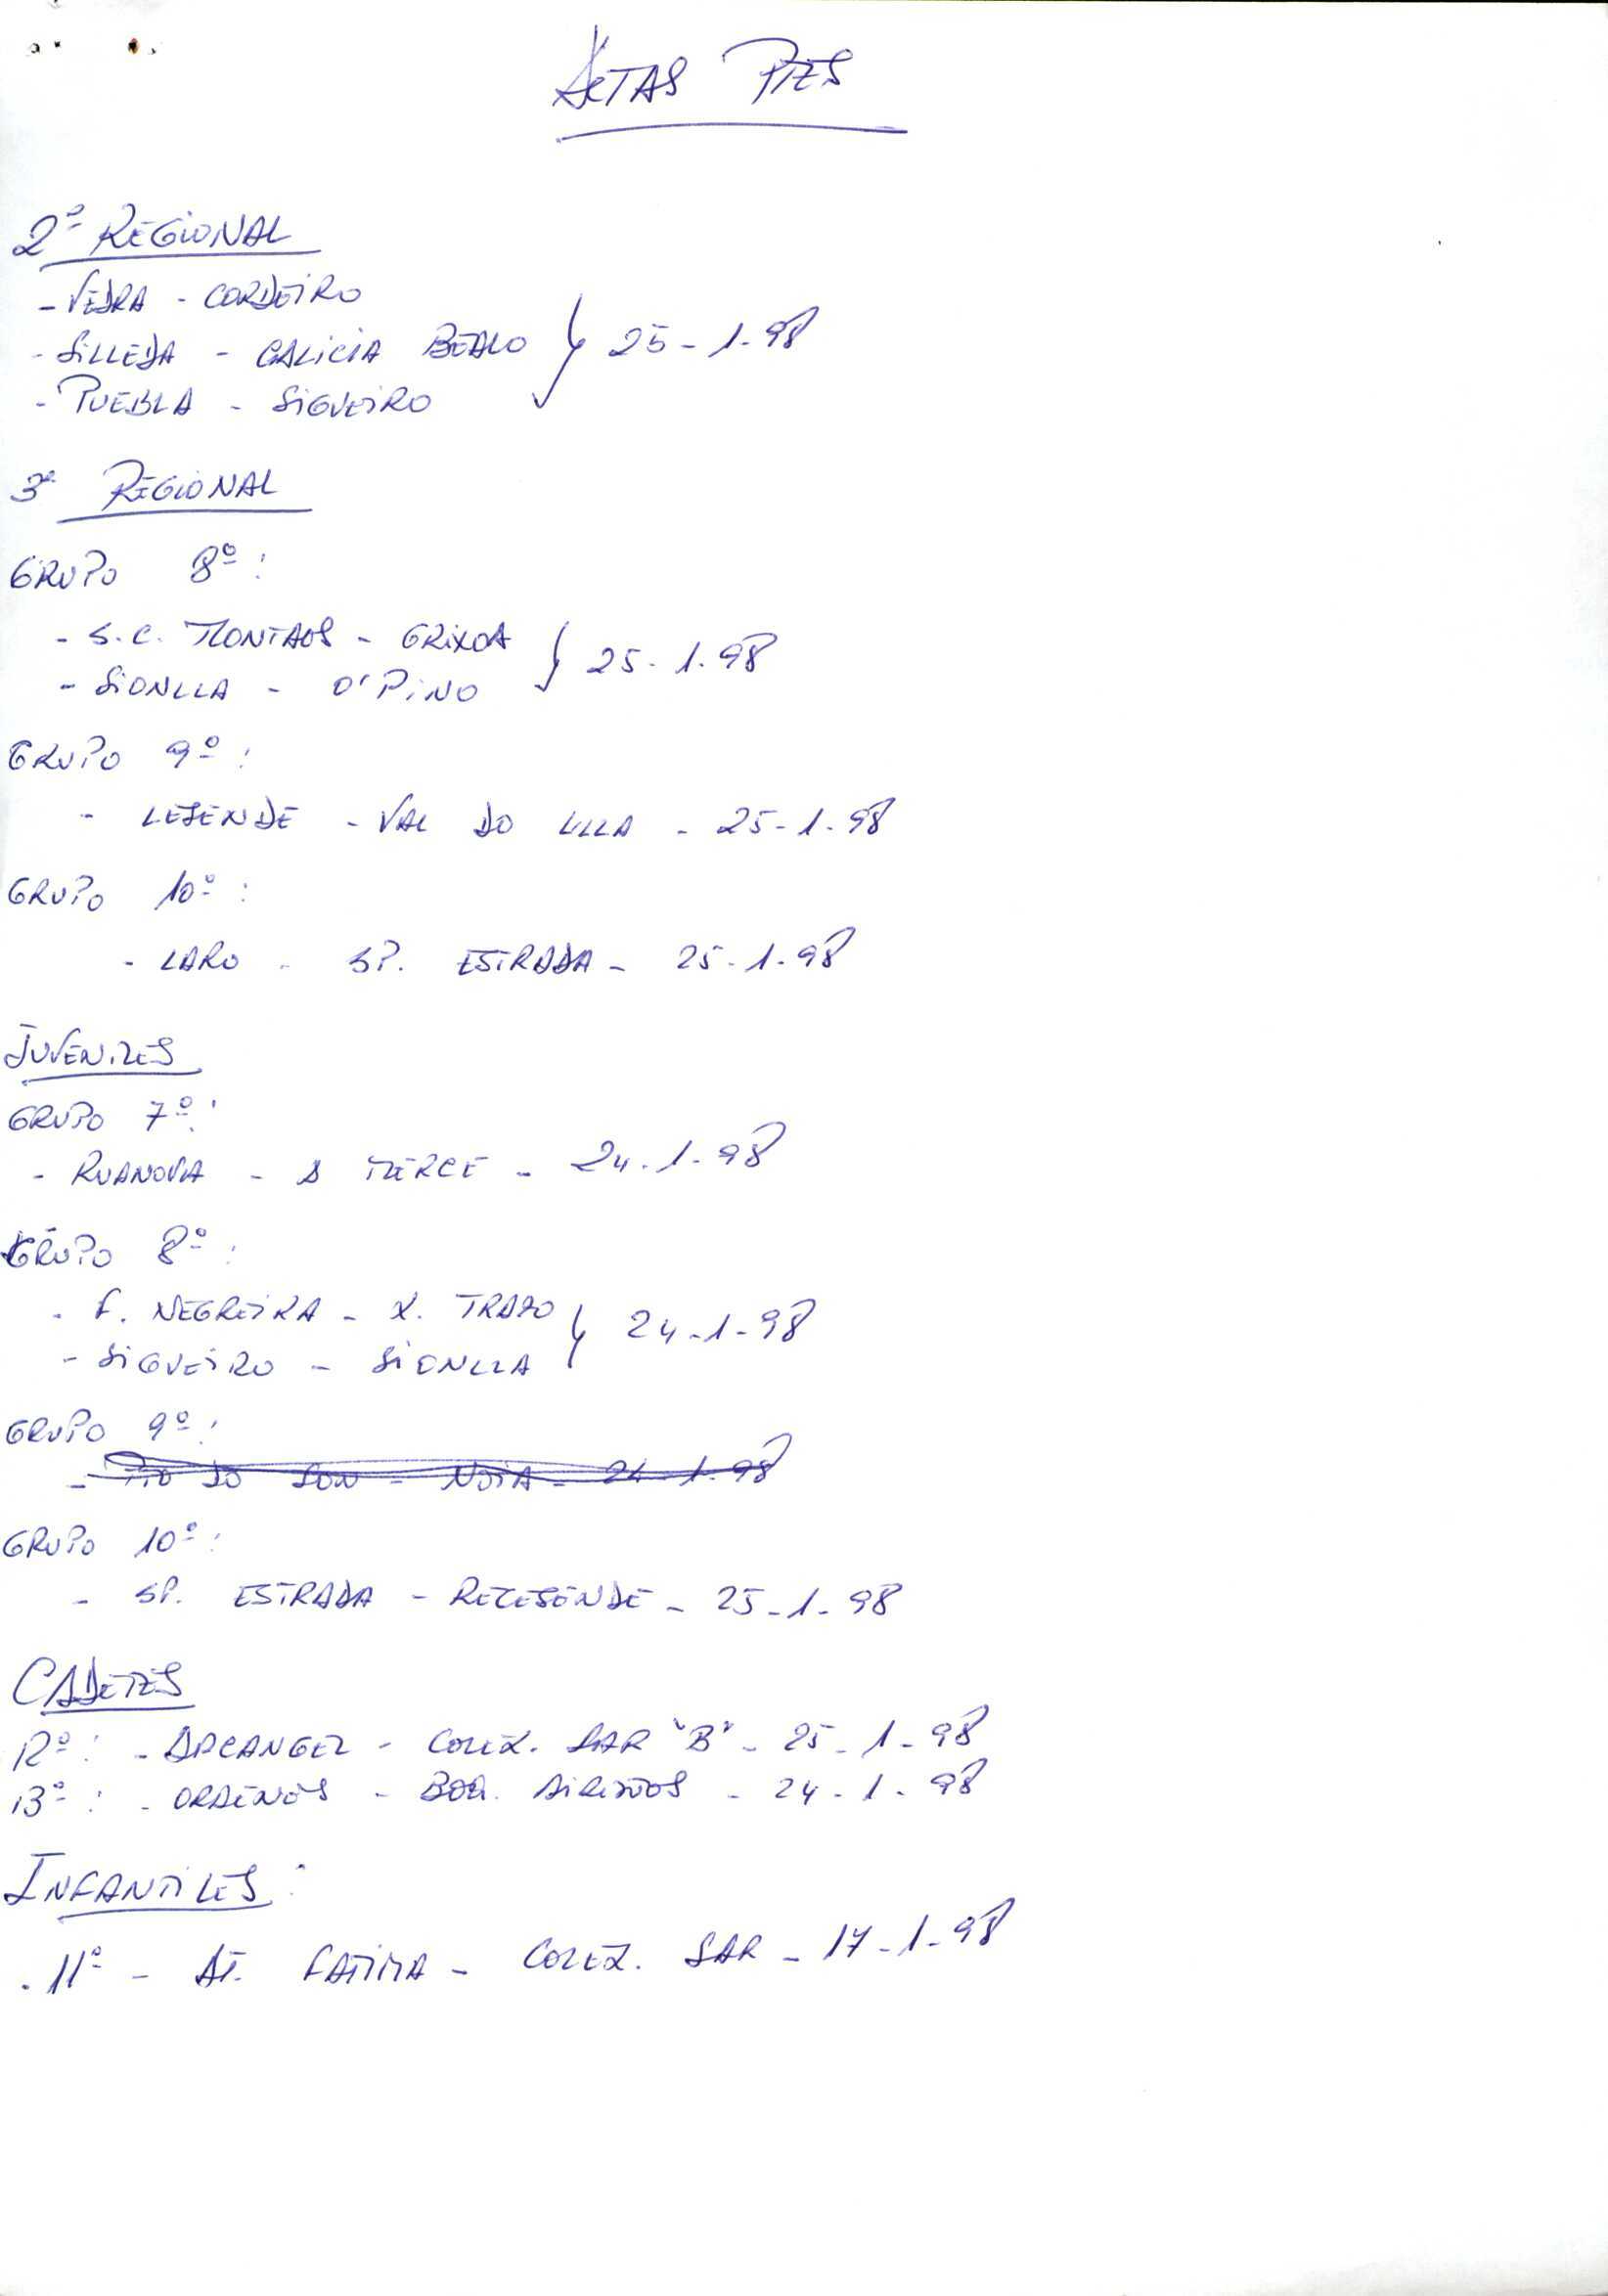 ACTAS PTES
2ª REGIONAL
- VEDRA - CORDEIRO
- SILLEDA - GALICIA BEALO } 25-1-98
- PUEBLA - SIGUEIRO
3ª REGIONAL
GRUPO 8º:
- S.C. MONTAOS - GRIXOA
- SIONLLA - O'PINO } 25-1-98
GRUPO 9º:
- LESENDE - VAL DO ULLA - 25-1-98
GRUPO 10º:
- LARO - SP. ESTRADA - 25-1-98
JUVENILES
GRUPO 7º:
- RUANOVA - A MERCE - 24-1-98
GRUPO 8º:
- F. NEGREIRA - X. TRAZO
- SIGUEIRO - SIONLLA } 24-1-98
GRUPO 9º:
- PTO DO SON - NOIA - 24-1-98
GRUPO 10º:
- SP. ESTRADA - RECESENDE - 25-1-98
CADETES
12º: - ARCANGEL - COLEX. SAR "B" - 25-1-98
13º: - ORDENES - BOQ. AIRIÑOS - 24-1-98
INFANTILES:
- 11º - AT. FATIMA - COLEX. SAR - 17-1-98